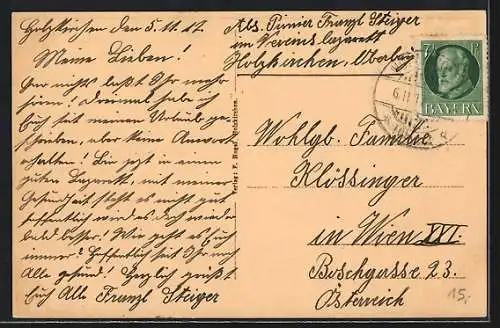 Holzkirchen den 5.11.17
Meine Lieben!
Gar nichts laßt Ihr mehr
hören! Dreimal habe ich
Euch seit meinem Urlaub ge-
schrieben, aber keine Antwort
erhalten! Bin jetzt in einem
guten Lazarett, mit meiner
Gesundheit steht es nicht gut
hoffentlich wird es doch wieder
bald besser! Wie geht es Euch
immer? Hoffentlich seit Ihr noch
Alle gesund! Herzlich grüßt
Euch Alle Franzl Steiger
Verlag: F. Holzkirchen.
Abs. Pionier Franzl Steiger
im Vereins lazarett
Holzkirchen, Oberbay
7½ P
BAYERN
6.11.
Wohlgb. Familie
Klössinger
in Wien XVI.
Boschgasse 23.
Österreich
15,-